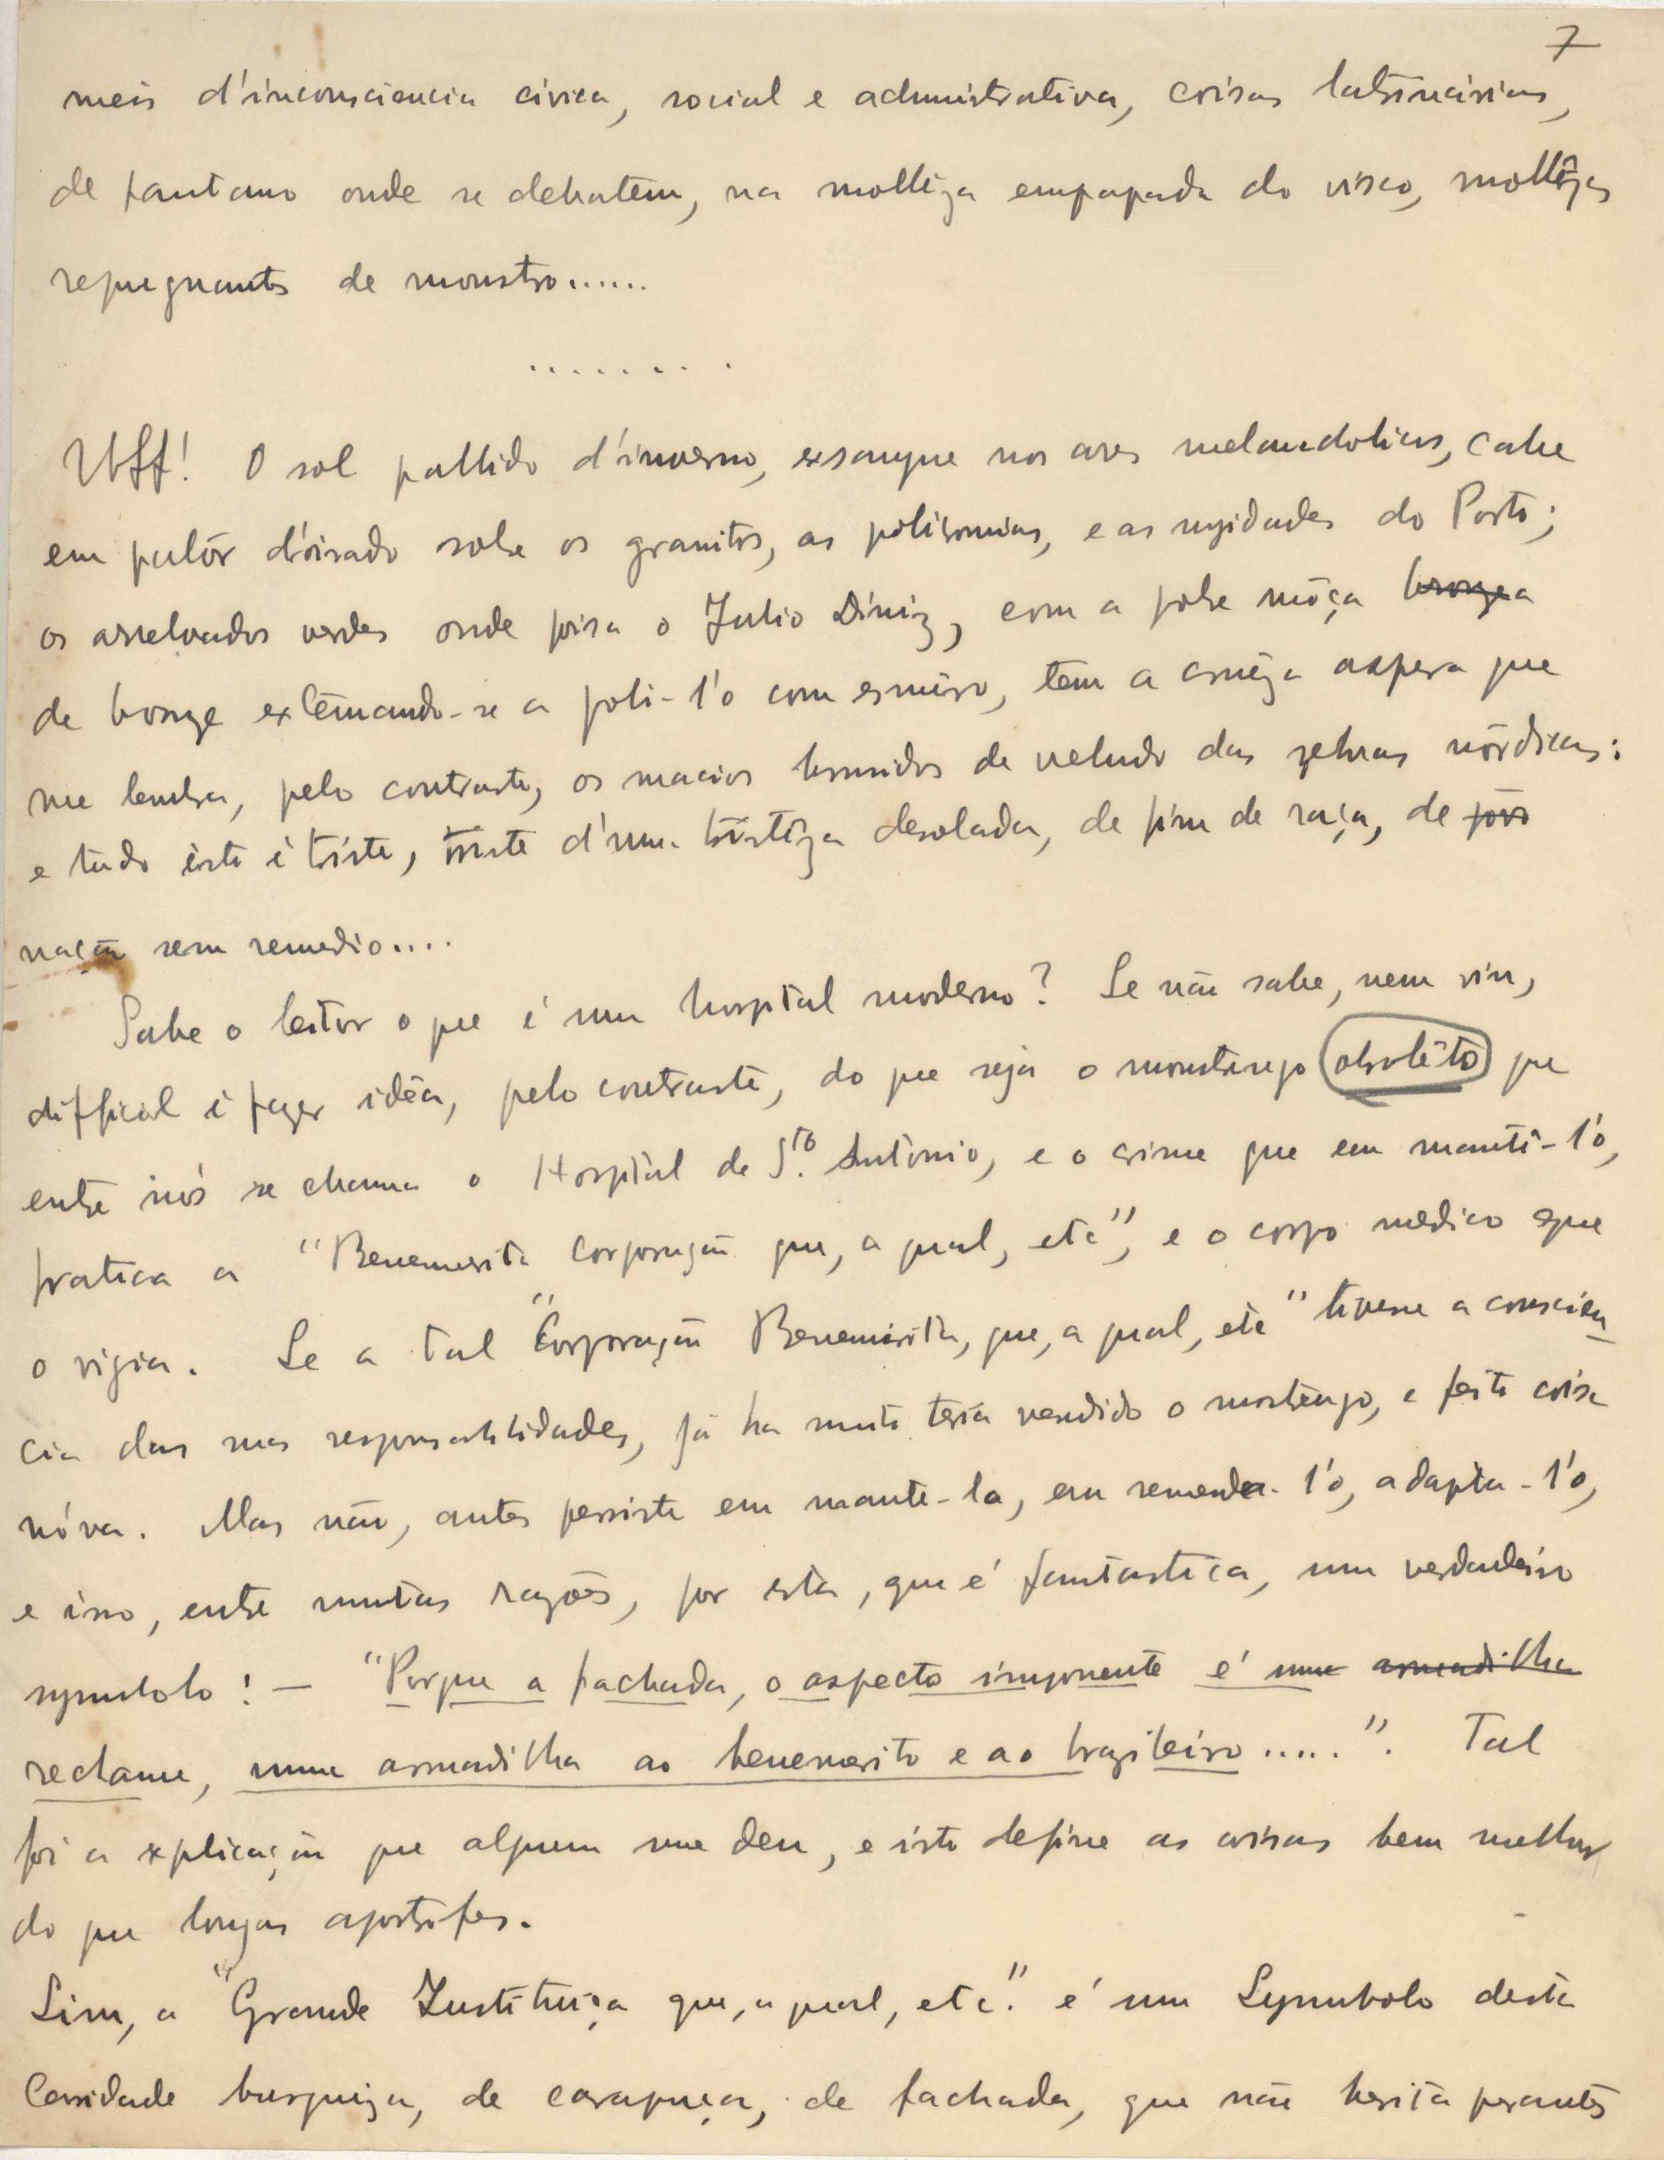 7
meis d'inconsciencia civica, social e administrativa, coisas latrinárias,
de pantano onde se debatem, na mollêza empapada do visco, mollêzas
repugnantes de monstro......
........
Uff! O sol pallido d'inverno, exsangue nos ares melancolicos, cahe
em palôr d'oirado sobre os granitos, as policromias, e as rugidades do Porto;
os arrelvados verdes onde poisa o Julio Diniz, com a pobre môça bronzea
de bronze extenuando-se a poli-l'o com esméro, tem a cruêza aspera que
me lembra, pelo contraste, os macios brunidos de veludo das relvas nórdicas:
e tudo isto é triste, triste d'uma tristêza desolada, de fim de raça, de povo
nação sem remedio....
Sabe o leitor o que é um hospital moderno? Se não sabe, nem viu,
difficil é fazer idêa, pelo contraste, do que seja o monstrengo obsolêto que
entre nós se chama o Hospital de Sto. Antonio, e o crime que em mantê-l'o,
pratica a "Benemerita Corporação que, a qual, etc", e o corpo medico que
o vigia. Se a tal "Corporação Benemérita, que, a qual, etc" tivesse a conscien
cia das suas responsabilidades, já ha muito teria vendido o mostrengo, e feito coisa
nóva. Mas não, antes persiste em mante-la, em remenda-l'o, adapta-l'o,
e isso, entre muitas razões, por esta, que é fantastica, um verdadeiro
symbolo! - "Porque a fachada, o aspecto imponente é uma armadilha
reclame, uma armadilha ao benemerito e ao brazileiro.....". Tal
foi a explicação que alguem me deu, e isto define as coisas bem melhor
do que longas apostrofes.
Sim, a "Grande Instituiça que, a qual, etc." é um Symbolo desta
Caridade burgueza, de carapuça, de fachada, que não hesita perantes